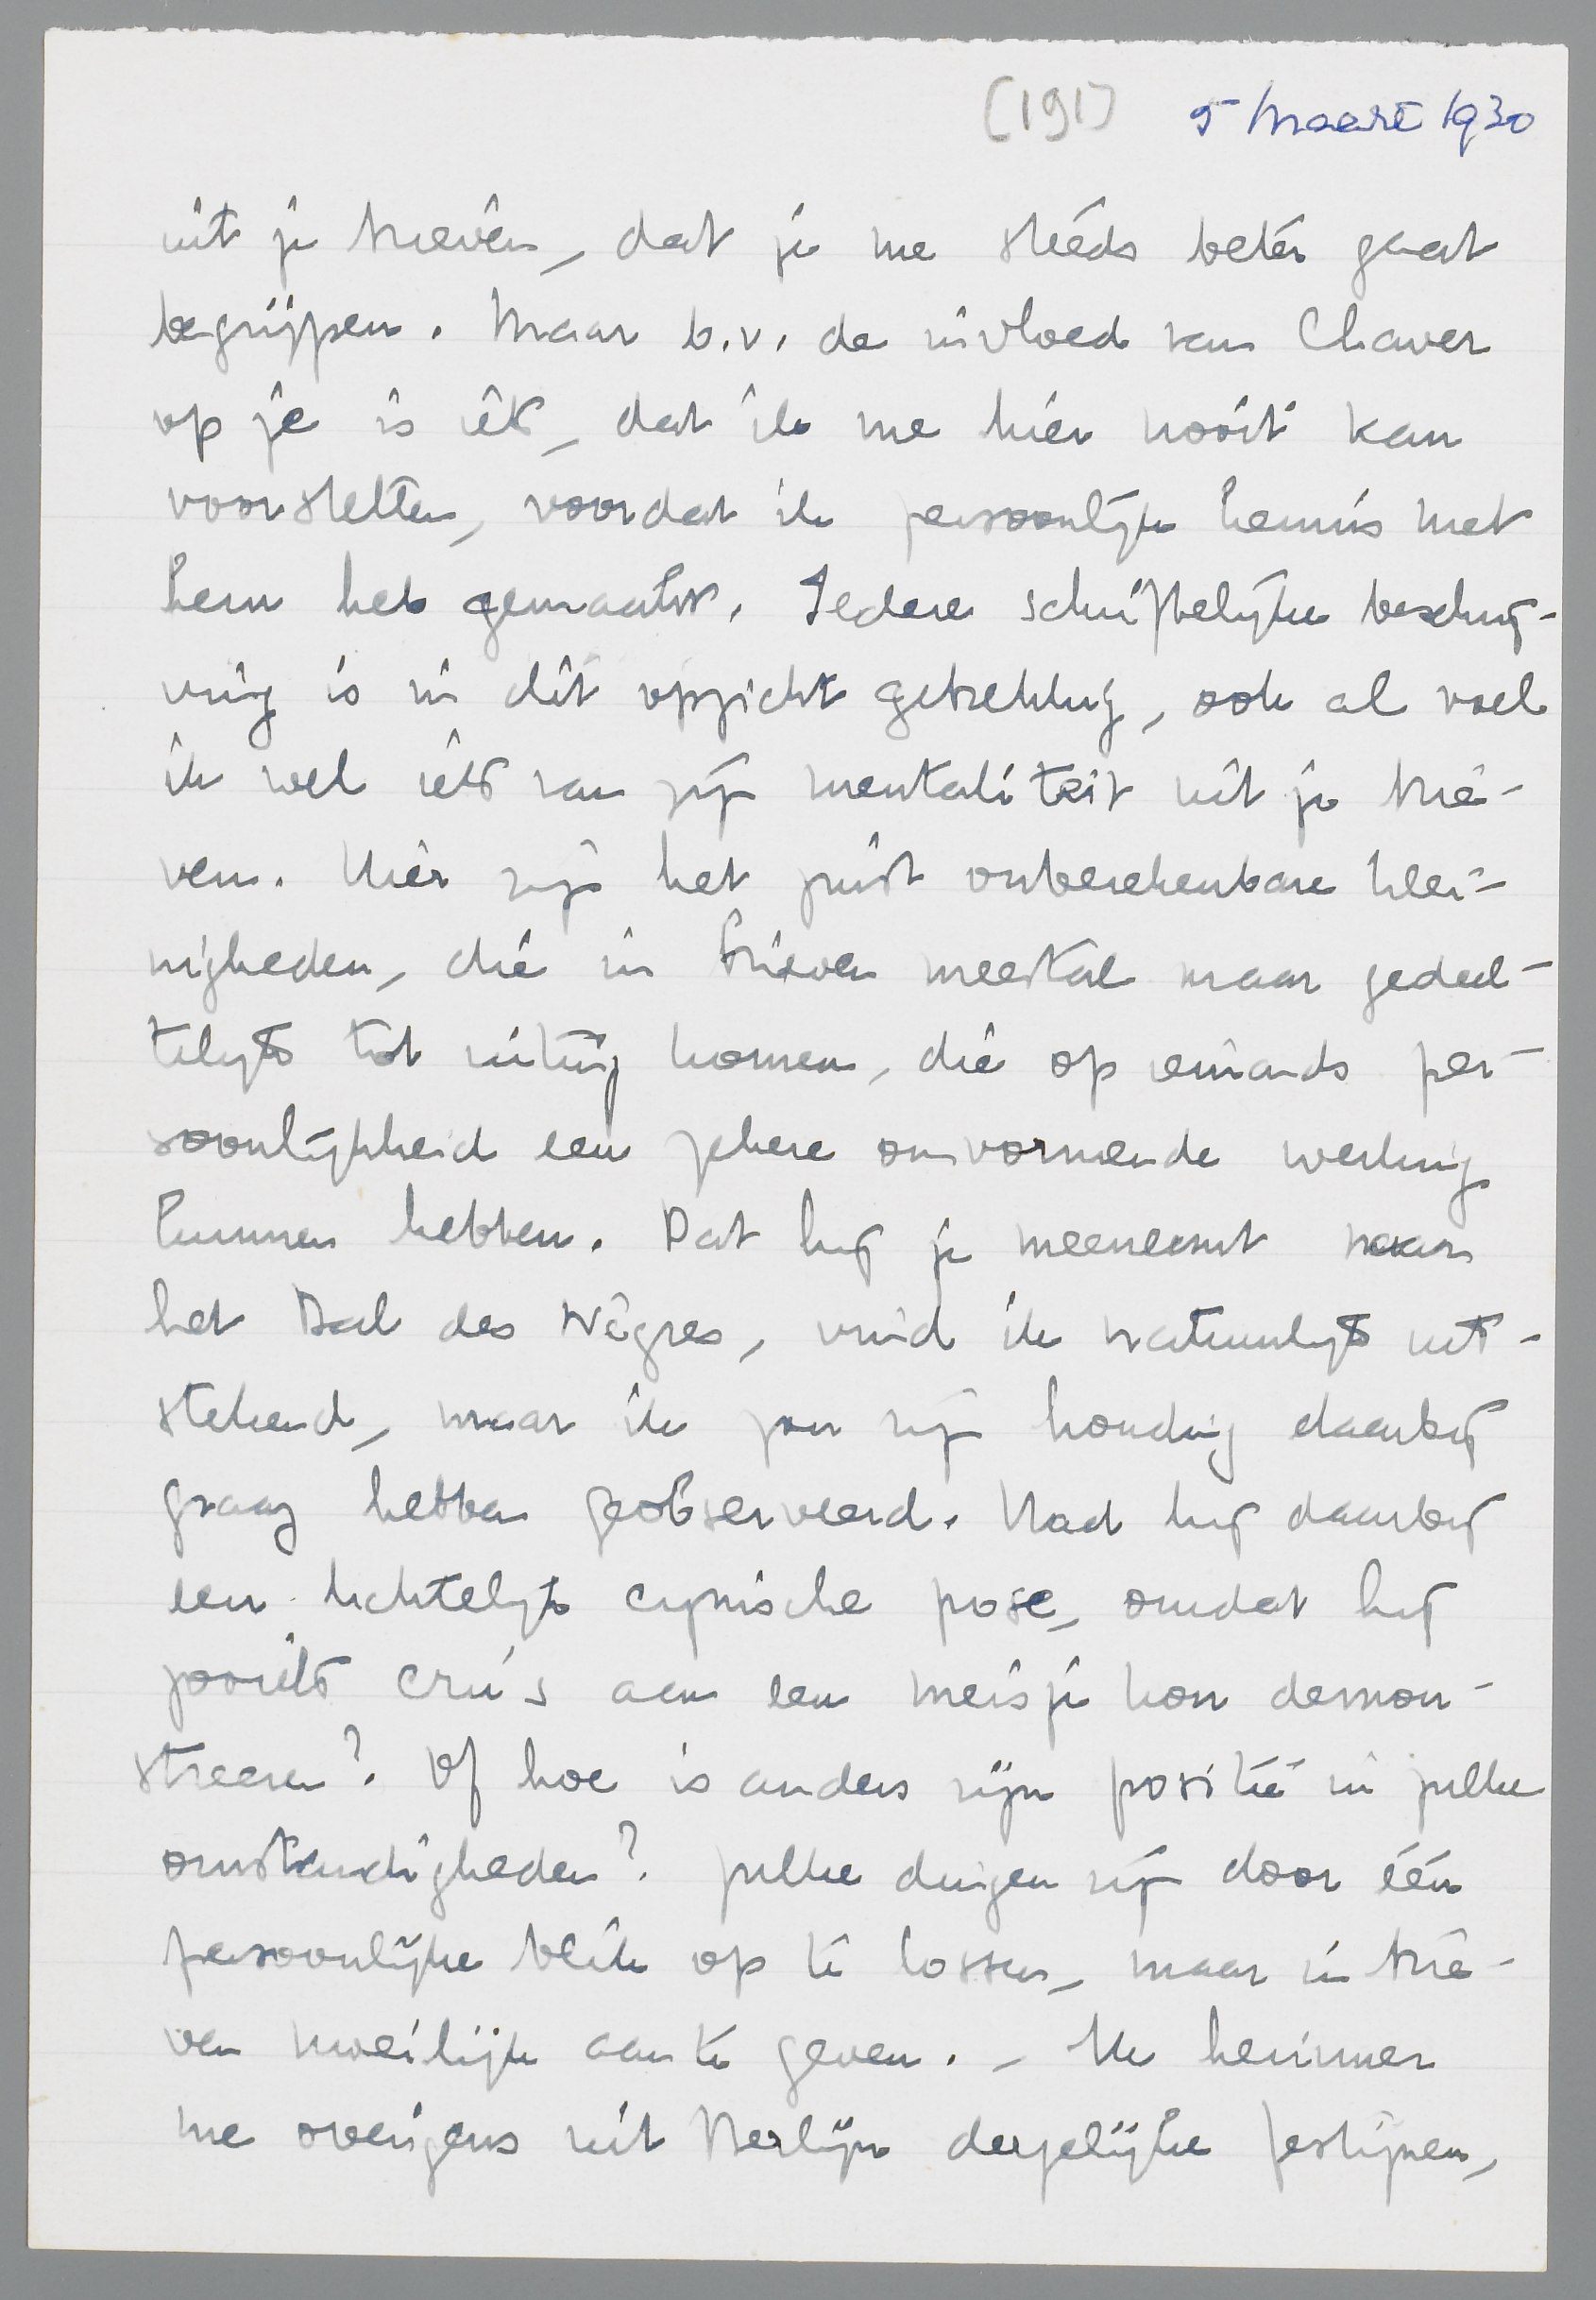 (191) 5 Maart 1930
uit je brieven, dat je me steeds beter gaat
begrijpen. Maar b.v. de invloed van Chaver
op je is iets, dat ik me hier nooit kan
voorstellen, voordat ik persoonlijke kennis met
hem heb gemaakt. Iedere schriftelijke beschrij-
ving is in dit opzicht gebrekkig, ook al voel
ik wel iets van zijn mentaliteit uit je brie-
ven. Hier zijn het juist onberekenbare klei-
nigheden, die in brieven meestal maar gedeel-
telijk tot uiting komen, die op iemands per-
soonlijkheid een zekere omvormende werking
kunnen hebben. Dat hij je meeneemt naar
het Bal des Nègres, vind ik natuurlijk uit-
stekend, maar ik zou zijn houding daarbij
graag hebben geobserveerd. Had hij daarbij
een lichtelijk cynische pose, omdat hij
zooiets cru's aan een meisje kon demon-
streeren? Of hoe is anders zijn positie in zulke
omstandigheden? Zulke dingen zijn door één
persoonlijke blik op te lossen, maar in brie-
ven moeilijk aan te geven. – Ik herinner
me overigens uit Berlijn dergelijke festijnen,